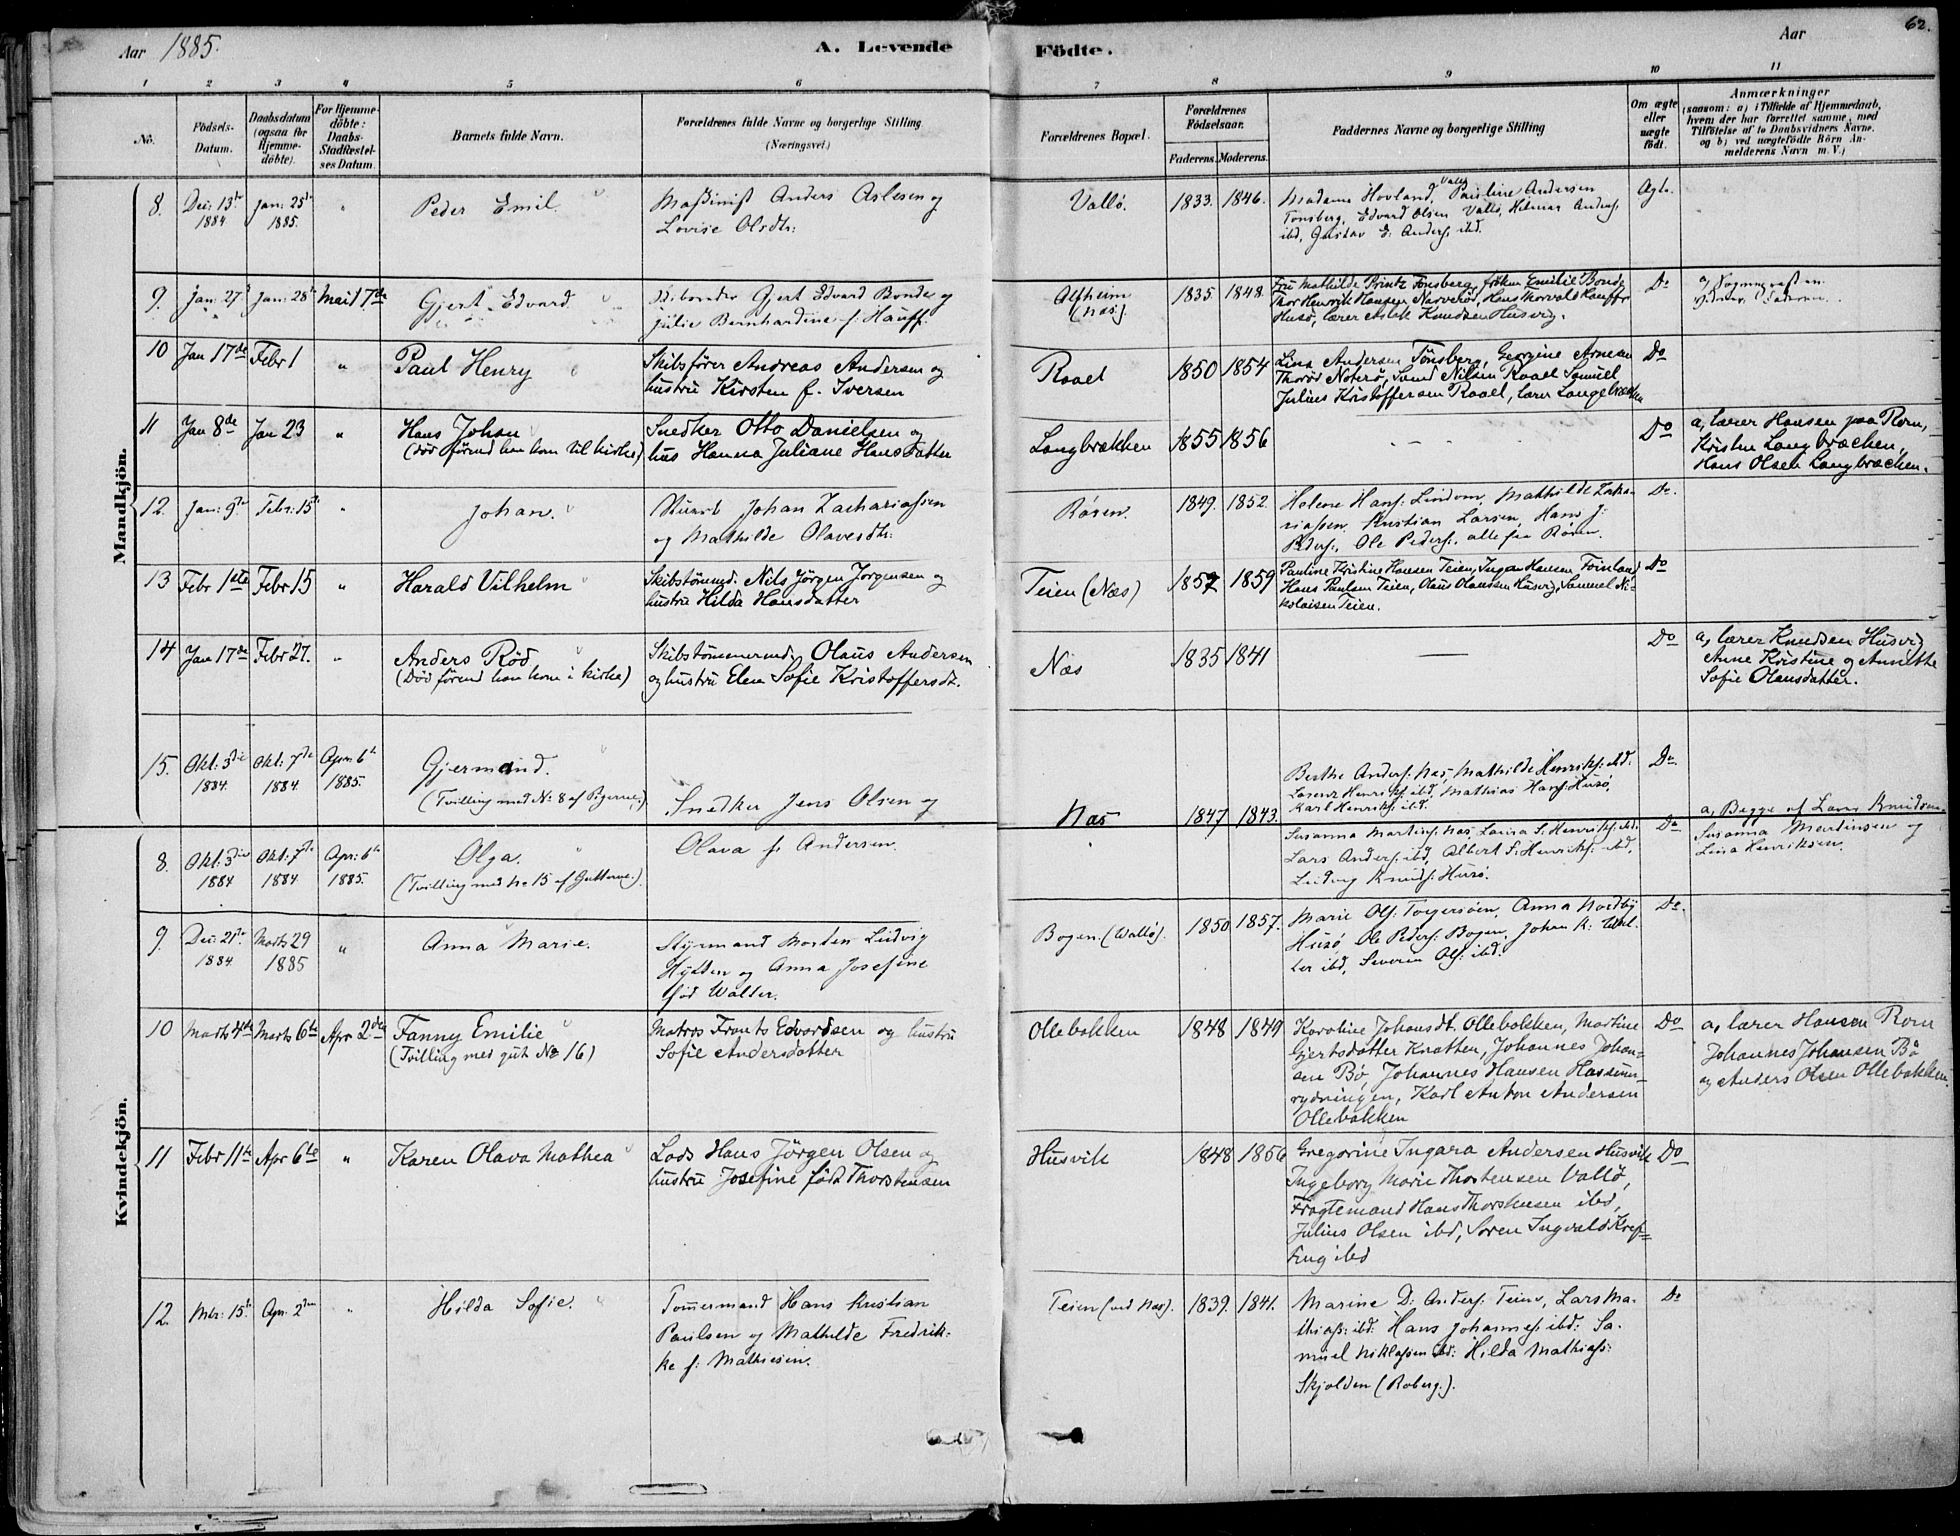 Aar 1885.
A. Levende
Födte.
Aar
62.
1 2 3 4 5 6 7 8 9 10 11
No.
Födsels-
Datum.
Daabsdatum
(ogsaa for
Hjemme-
döbte).
For Hjemme-
döbte:
Daabs-
Stadfæstel-
ses Datum.
Barnets fulde Navn.
Forældrenes fulde Navne og borgerlige Stilling
(Næringsvei)
Forældrenes Bopæl.
Forældrenes
Födselsaar.
Faderens. Moderens.
Faddernes Navne og borgerlige Stilling
Om ægte
eller
uægte
födt.
Anmærkninger
(saasom: a) i Tilfælde af Hjemmedaab,
hvem der har forrettet samme, med
Tilföielse af to Daabsvidners Navne.
og b) ved uægtefödte Börn An-
melderens Navn m. V.)
Mandkjön.
8. Dec: 13de 1884 Jan: 25de 1885. " Peder Emil.
Maskinist Anders Aslesen og
Lovise Olsdtr:
Vallö. 1833. 1846.
Madame Hovland, Vallö, Pauline Andersen
Tönsberg, Edvard Olsen Vallö, Hilmar Anders:
ibd, Gustav E. Anders: ibd.
Ægte.
9. Jan: 27de Jan: 28de Mai 17de Gjert Edvard
Gjert Edvard Bonde og
Julie Bernhardine f: Hauff.
Olsheim
(Næs). 1835. 1848.
Fru Mathilde Printz Tönsberg, fröken Emilie Bonde
Thor Henrik Hansen Narverød, Hans Torvald Hauff
Husö, lærer Aslak Knudsen Husvig.
Do
10 Jan 17de Febr 1 " Paul Henry
Skibsförer Andreas Andersen og
hustru Kirsten f. Iversen
Roael 1850 1854
Lina Andersen Tönsberg, Georgine Arnesen
Thoröd Nöterö, Svend Nilsen Roael Samuel
Julius Kristoffersen Roael, lærer Langebrækken
Do
11 Jan 8de Jan 23 " Hans Johan
(död förend han kom til kirke)
Snedker Otto Danielsen og
hus Hanna Juliane Hansdatter
Langbrækken 1855 1856
- - -
Do
a, lærer Hansen paa Rom,
Kristen Langbræcken,
Hans Olsen Langbræcken.
12. Jan: 9de Febr: 15de " Johan.
Stuert Johan Zachariassen
og Mathilde Olavesdtr:
Rören. 1849. 1852.
Helene Hans: Lindom, Mathilde Zacha-
riassen, Kristian Larsen, Hans J:
Peders:, Ole Peders:, alle fra Rören.
Do.
13 Febr 1ste Febr 15 " Harald Vilhelm
Skibstömmd. Nils Jörgen Jorgensen og
hustru Hilda Hansdatter
Teien (Næs) 1857 1859
Pauline Kristine Hansen Teien, Inga Hansen Foinland
Hans Paulsen Teien, Olaus Olaussen Husvig, Samuel Ni-
kolaisen Teien.
Do
14 Jan 17de Febr 27. " Anders Röd
(Död förend han kom i kirke)
Skibstömmermd. Olaus Andersen
og hustru Elen Sofie Kristoffersdt.
Næs 1835 1841
—
Do
a, lærer Knudsen Husvig
Anne Kristine og Annette
Sofie Olausdatter.
15. Okt: 3die 1884. Okt: 7de 1884. Apr: 6te 1885. Gjermand.
(Tvilling med No 8 af Pigerne.)
Snedker Jens Olsen og
Næs 1847 1843.
Berthe Anders: Næs, Mathilde Henriks: ibd.
Lorenz Henriks: ibd, Mathias Hans: Husö,
Karl Henriks: ibd.
Do.
a, Begge af Lærer Knudsen
Susanna Martinsen og
Lina Henriksen.
Kvindekjön.
8. Okt: 3die 1884 Okt: 7de 1884 Apr: 6te 1885. Olga.
(Tvilling med No 15 af Gutterne.)
Olava f: Andersen.
Susanna Martins: Næs, Lovisa S: Henriks: ibd.
Lars Anders: ibd, Albert S: Henriks: ibd,
Ludvig Knuds: Husö.
Do
9. Dec: 21de 1884. Marts 29 1885 " Anna Marie.
Styrmand Morten Ludvig
Hytten og Anna Josefine
föd Walter.
Bogen. (Wallö). 1850. 1857.
Marie Ols: Torgersöen, Anna Nordby
Husö, Ole Peders: Bogen, Johan K: Wal-
ter ibd, Severin Ols: ibd.
Do.
10 Marts 4de Marts 6te Apr 2den Fanny Emilie
(Tvilling med gut No 16)
Matros Frants Edvardsen og hustru
Sofie Andersdatter
Ollebakken 1848 1849
Karoline Johansdt. Ollebakken, Martine
Gjertsdatter Knatten, Johannes Johan-
sen Bö, Johannes Hansen Hassum-
rydningen, Karl Anton Andersen
Ollebakken
Do
a, lærer Hansen Rom
Johannes Johansen Bö
og Anders Olsen Ollebakken.
11 Febr 11te Apr 6te " Karen Olava Mathea
Lods Hans Jörgen Olsen og
hustru Josefine föd Thorstensen
Husvik 1848 1856
Gregorine Ingara Andersen Husvik
Ingeborg Marie Thorstensen Vallö,
Fragtemand Hans Thorstensen ibd,
Julius Olsen ibd, Sören Ingvald Kref-
ting ibd
Do
12. Mts: 15de Apr: 2den " Hilda Sofie.
Tömmermand Hans Kristian
Paulsen og Mathilde Fredrik-
ke f: Mathiesen.
Teien (ved Næs). 1839. 1841.
Marine D: Anders: Teien, Lars Ma-
thias: ibd: Hans Johannes: ibd: Sa-
muel Niklassen ibd: Hilda Mathias:
Skjolden (Roberg.).
Do